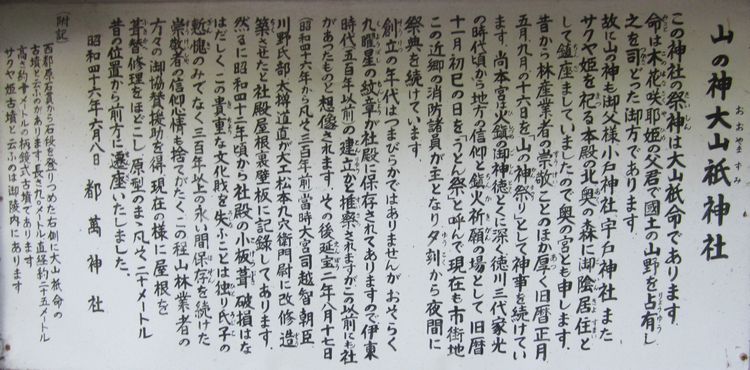 山の神大山祇神社
おおやますみ
この神社の祭神は大山祇命であります。
命は木花咲耶姫の父君で國土の山野を占有し
之を司どった御方であります。
故に山の神も御父様小戸神社、宇戸神社また
サクヤ姫を祀る本殿の北奥の森に御陰居住と
して鎮座ましていましたので奥の宮とも申します。
昔から林産業者の崇敬ことのほか厚く旧暦正月
五月九月の十六日を「山の神祭り」として神事を続けてい
ます。尚本宮は火鎮の御神徳とくに深く徳川三代家光
の時代頃から地方の信仰と鎮火祈願の場として旧暦
十一月初巳の日を「うとん祭」と呼んで現在も市街地
この近郷の消防諸員が主となり夕刻から夜間に
祭典を続けています。
創立の年代はつまびらかではありませんがおそらく
九曜星の紋章が社殿に保存されてありますので伊東
時代(五百年以前)の建立かと推察されますがこの以前にも社
があったものと想像されます。その後延宝二年八月十七日
(昭和四十六年から凡そ三百年前)當時大宮司越智朝臣
川野氏部太輔道直が大工松本九六衛門尉に改修造
築させたと社殿屋根裏壁板に記録してあります。
然るに昭和四十三年頃から社殿の小板葺破損はな
はだしく、この貴重な文化財を失ふことは独り氏子の
慙愧のみでなく三百年以上の永い間保存を続けた
崇敬者の信仰心情も捨てがたくこの程山林業者の
方々の御協賛援助を得、現在の様に屋根を
葺替修理をほどこし原型のまゝ凡そ二十メートル
昔の位置から前方に遷座いたしました。
昭和四十六年六月八日 都萬神社
(附記)
西都原右貫から石段を登りつめた右側に大山祇命の
古墳と云ふのがあります長さ九〇メートル直径約二十五メートル
高さ約十メートルの柄鏡式古墳であります
サクヤ姫古墳と云ふのは御陵内にあります